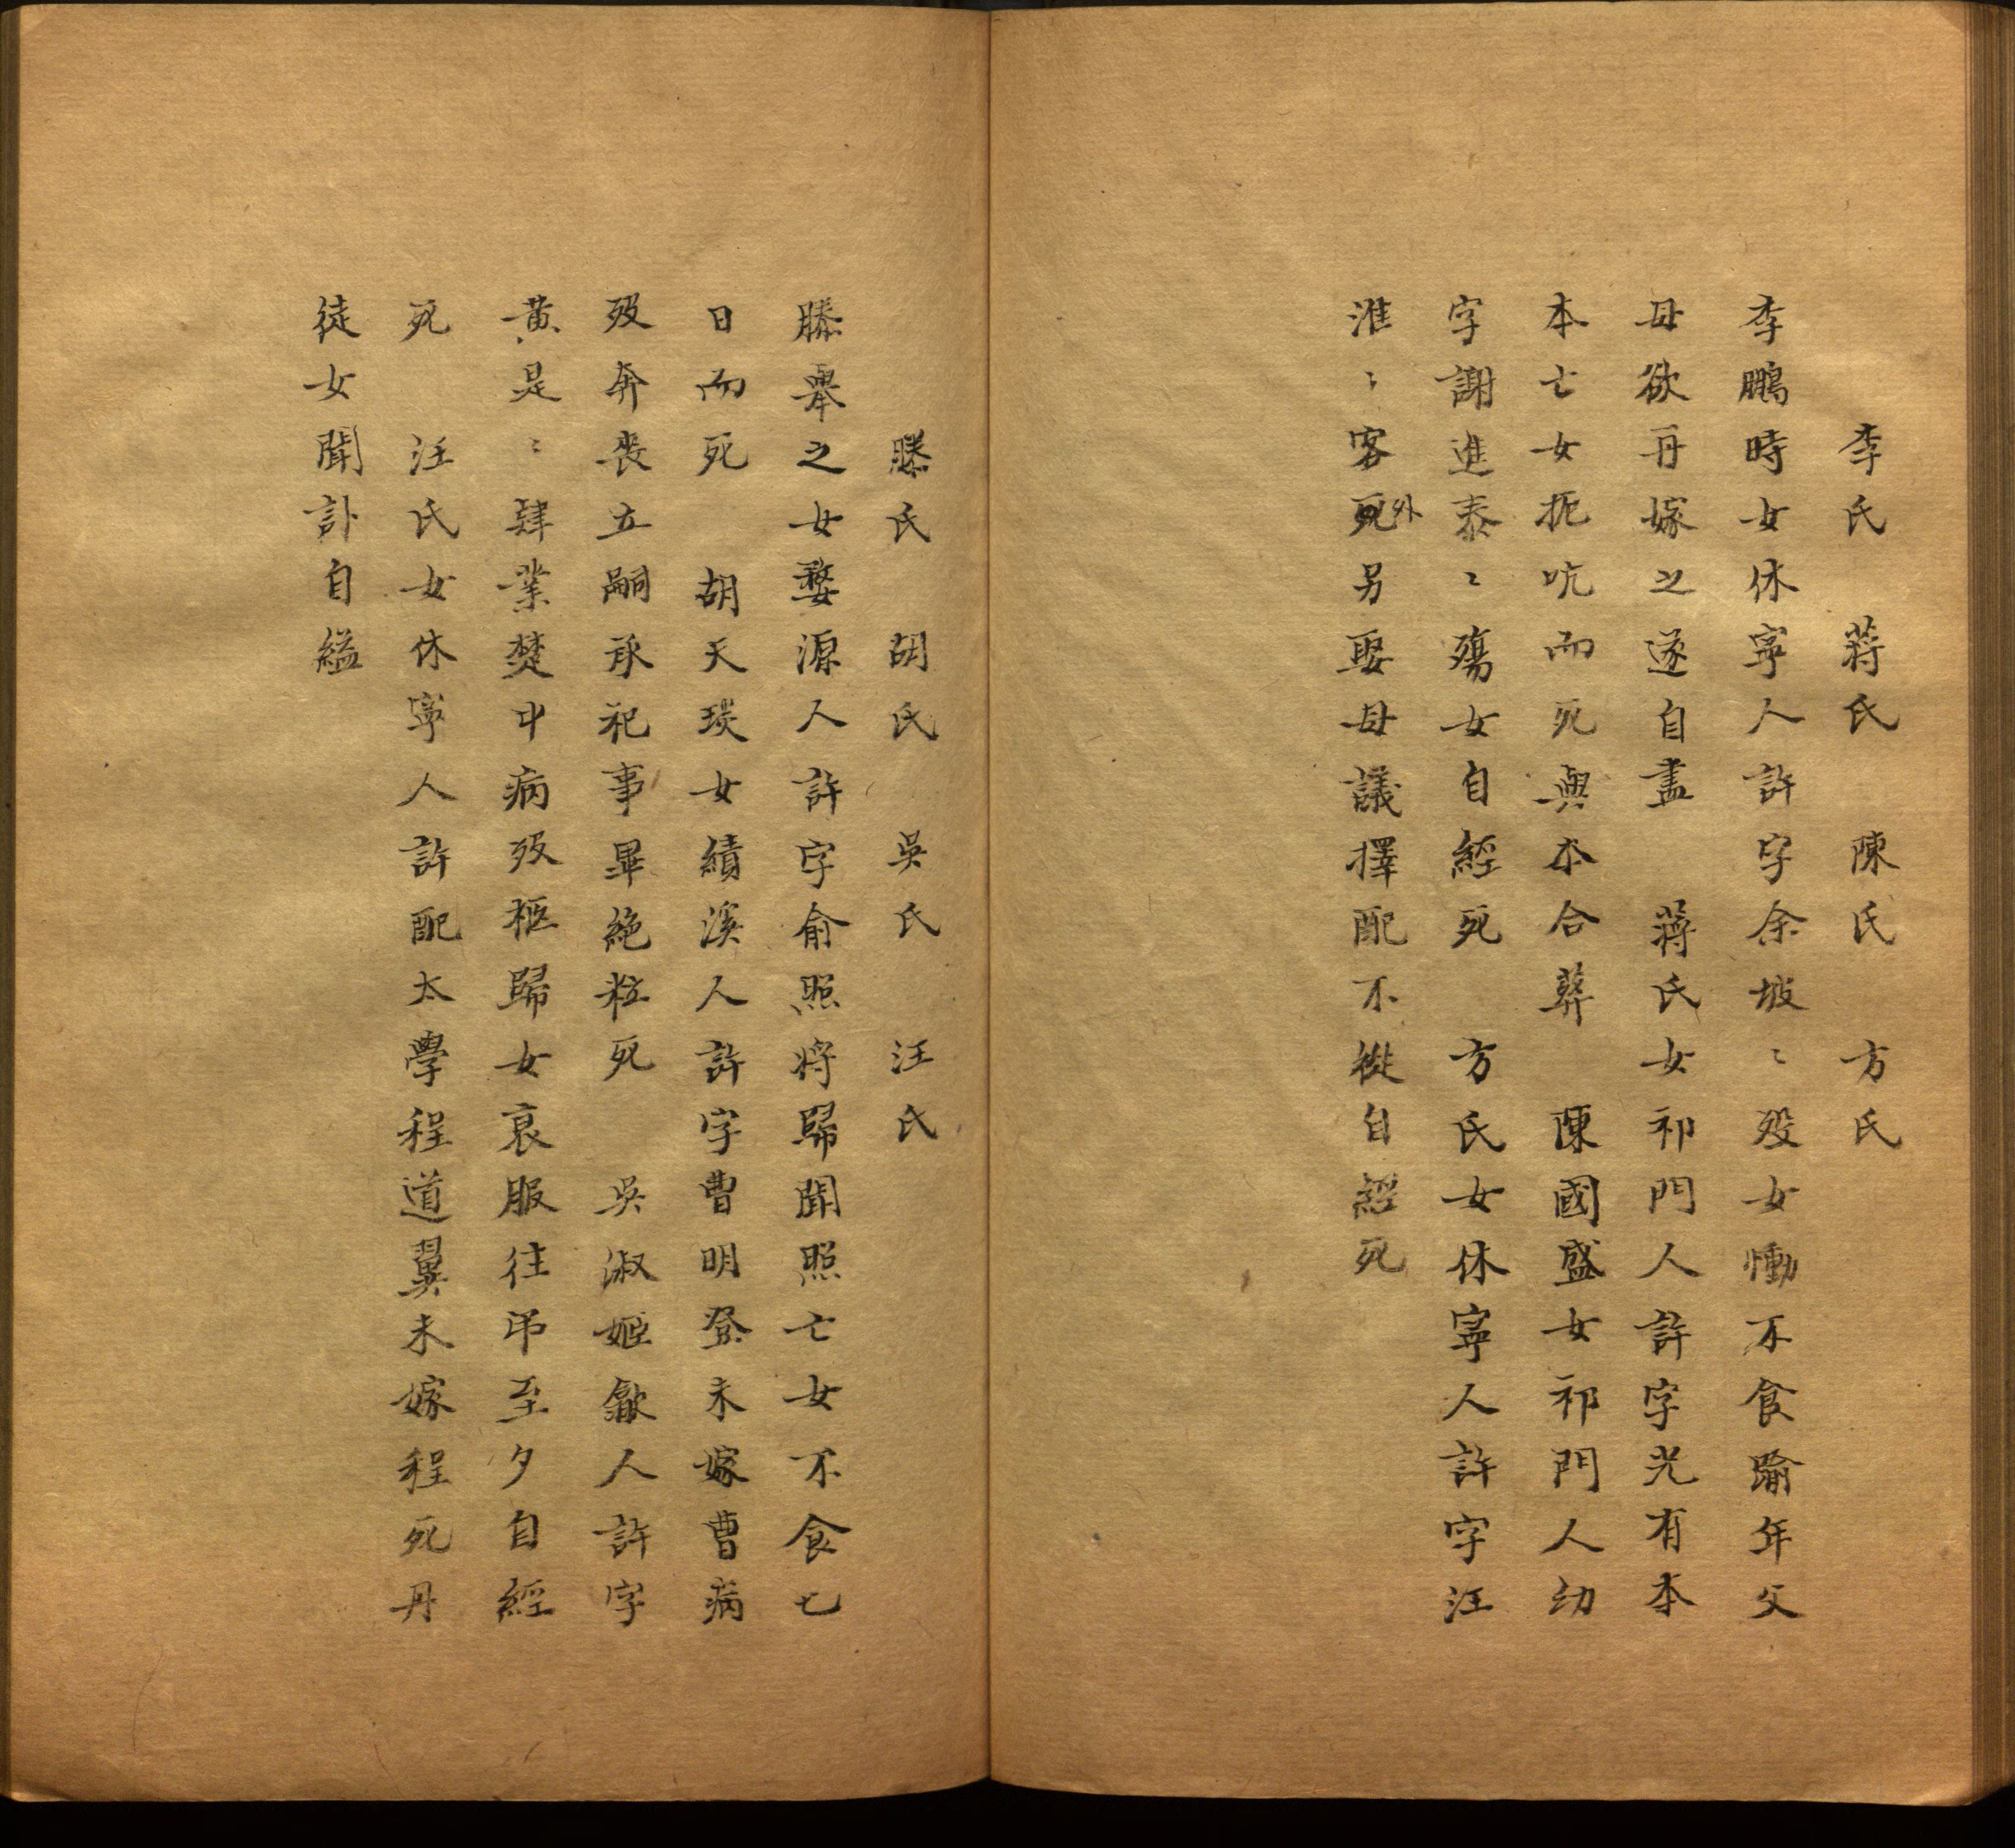 李氏　蔣氏　陳氏　方氏
李鵬時女休寧人許字余坡〻殁女慟不食踰年父
母欲再嫁之遂自盡　蔣氏女祁門人許字光有本
本亡女扼吭而死與本合葬　陳國盛女祁門人幼
字謝進泰〻殤女自經死　方氏女休寧人許字汪
淮〻客死外另娶母議擇配不從自經死
滕氏　胡氏　吳氏　汪氏
滕舉之女婺源人許字俞照將歸聞照亡女不食七
日而死　胡天琰女績溪人許字曹明登未嫁曹病
殁奔喪立嗣承祀事畢絶粒死　吳淑姬歙人許字
黄是〻肄業楚中病殁柩歸女衰服往弔至夕自經
死　汪氏女休寧人許配太學程道翼未嫁程死丹
徒女聞訃自縊